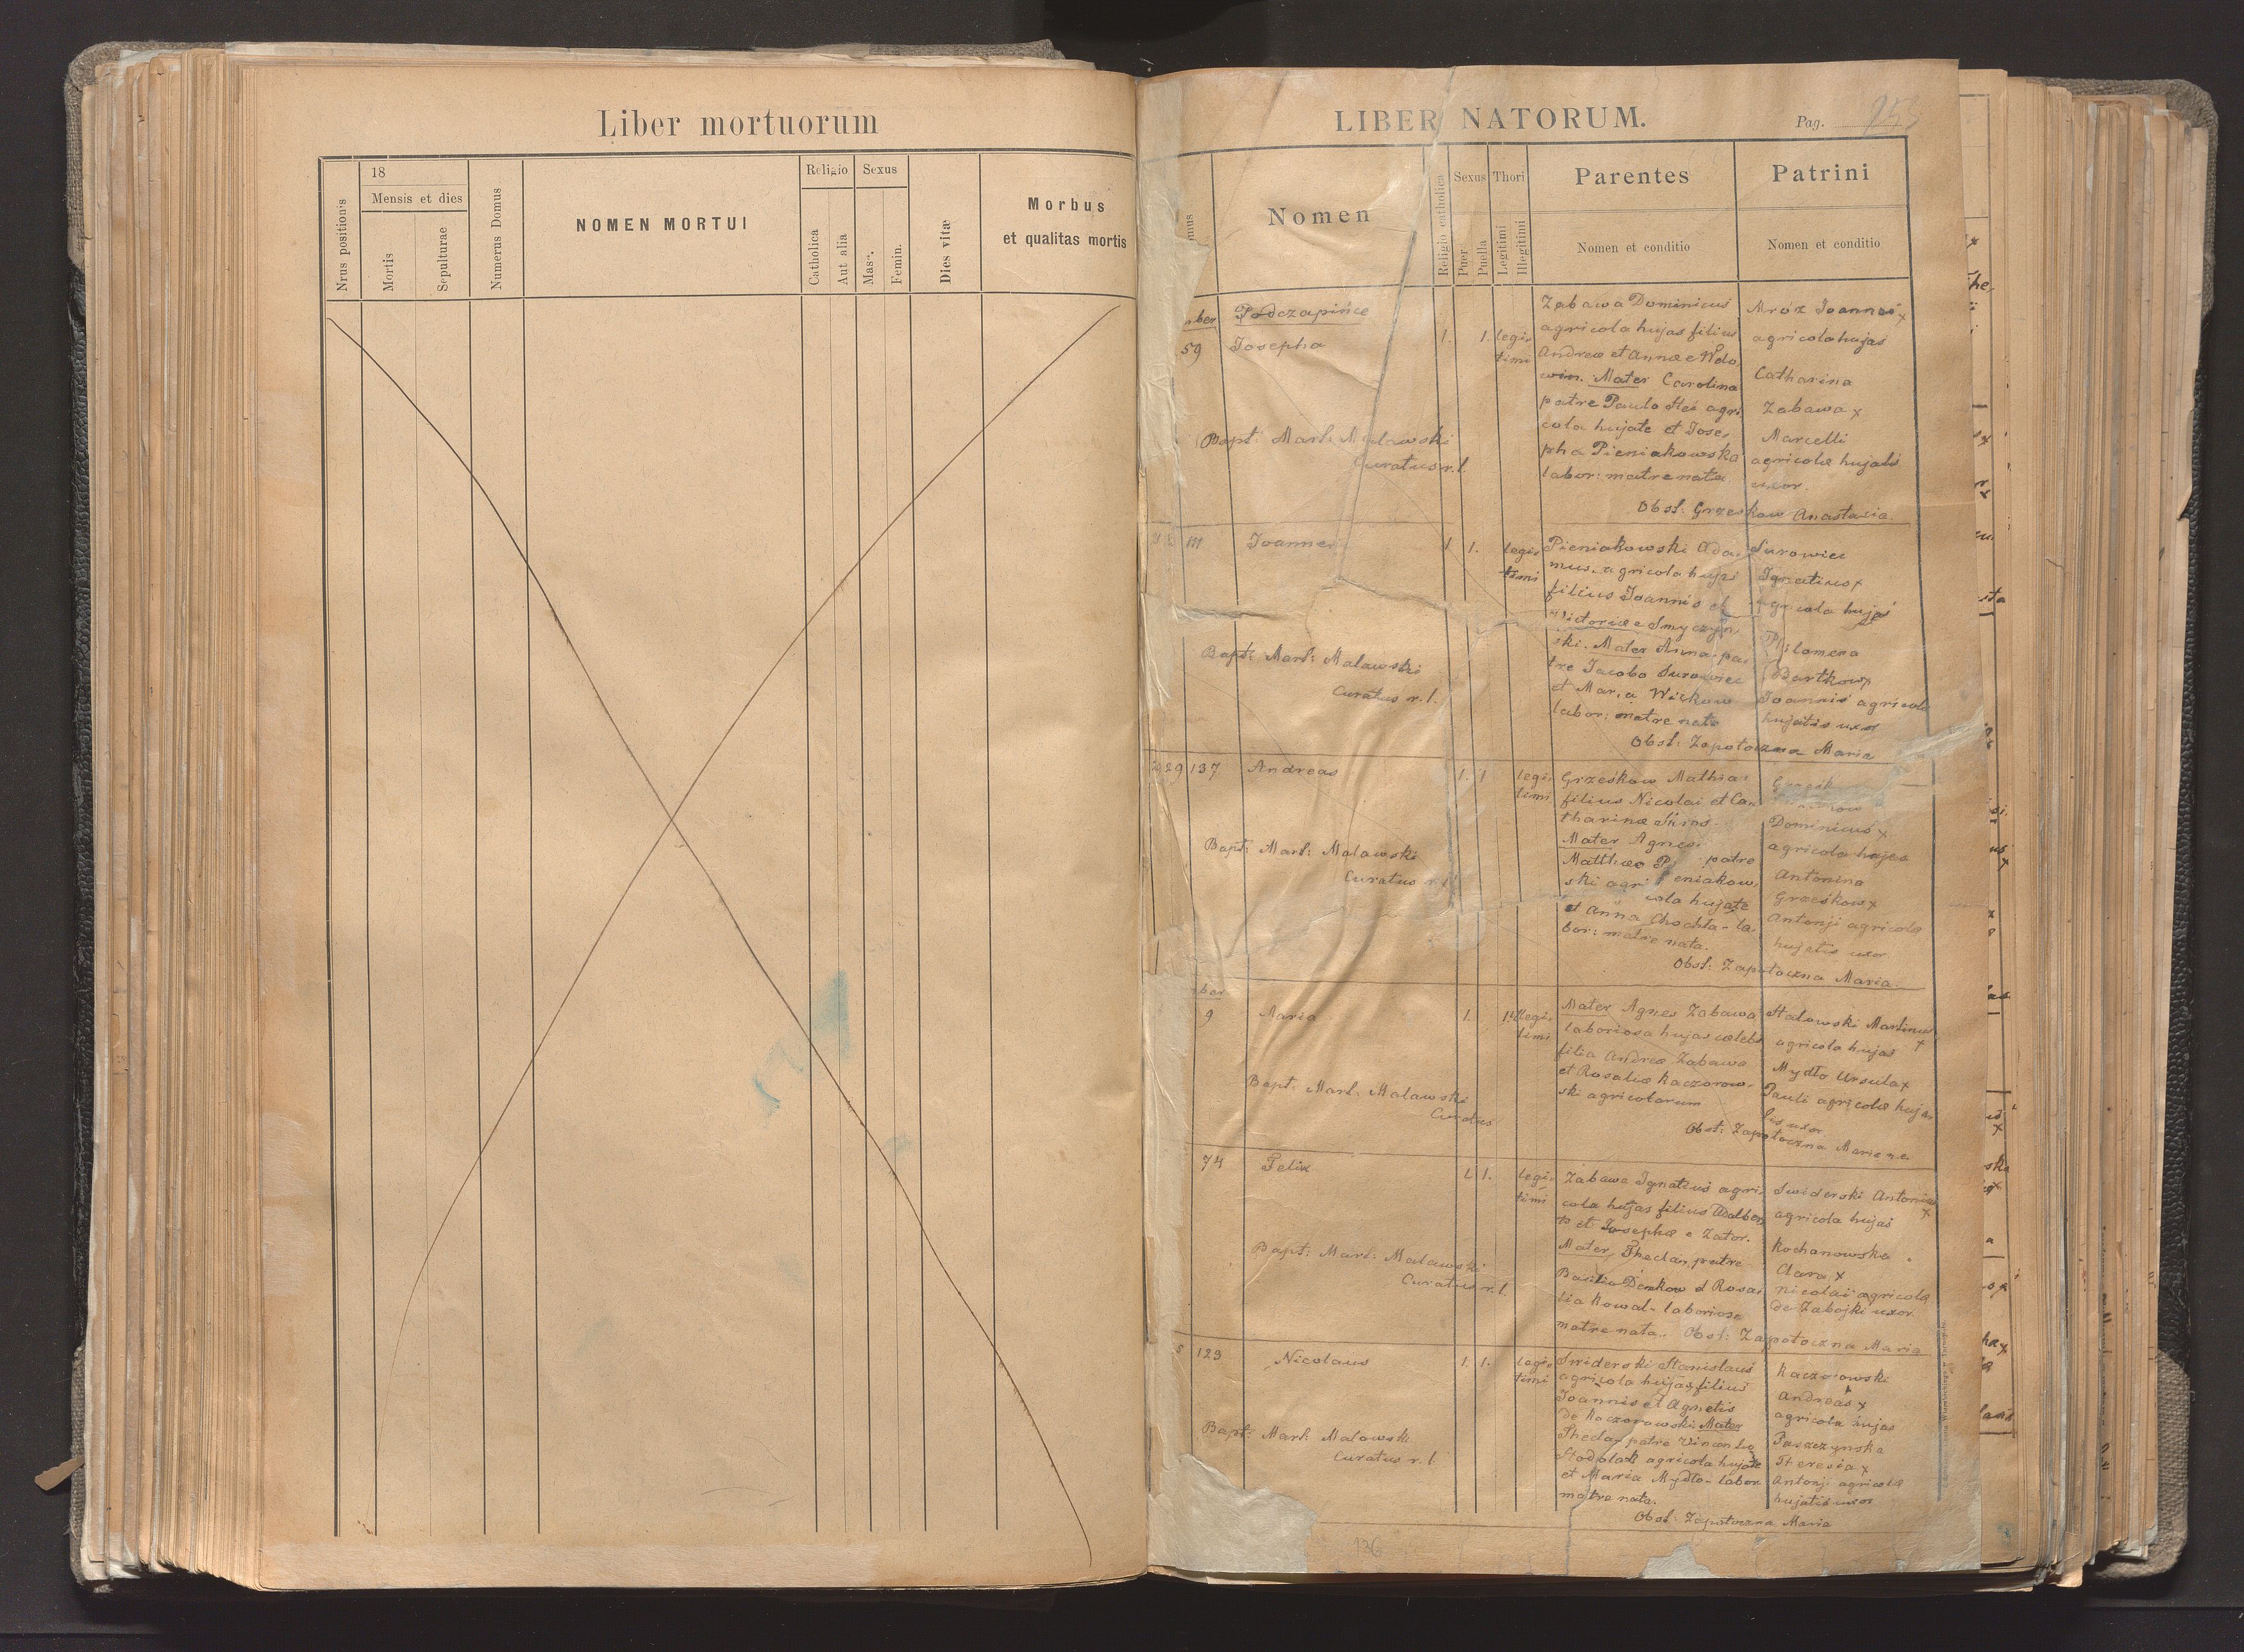 Liber mortuorum
Nrus positionis
18
Mensis et dies
Mortis
Sepulturae
Numerus Domus
NOMEN MORTUI
Religio
Catholica
Aut alia
Sexus
Masc.
Femin.
Dies vitæ
Morbus
et qualitas mortis
LIBER NATORUM.
Pag.
Nomen
Religio catholica
Sexus
Puer
Puella
Thori
Legitimi
Illegitimi
Parentes
Nomen et conditio
Patrini
Nomen et conditio
Podczapińce
59
Josepha
1.
1.
legi-
timi
Zabawa Dominicus
agricola hujas filius
Andreæ et Annæ e Wdo
win. Mater Carolina
patre Paulo Hei agri
cola hujate et Jose-
pha Pieniakowska
labor: matre nata
Mróz Joannes x
agricola hujas
Catharina
Zabawa x
Marcelli
agricolæ hujatis
uxor.
Bapt: Mart: Malawski
Curatus r. l.
Obst: Grzeskow Anastasia
Joannes
1
1.
legi-
timi
Pieniakowski Ada-
mus agricola hujas
filius Joannis et
Victoriæ e Smyczyn
ski. Mater Anna pa-
tre Jacobo Surowiec
et Maria Wickow
labor: matre nata
Surowiec
Ignatius x
agricola hujas
Philomena
Bartkow x
Joannis agricolæ
hujatis uxor
Bapt: Mart: Malawski
Curatus r. l.
Obst: Zapotoczna Maria
29
137
Andreas
1.
1
legi-
timi
Grzeskow Mathias
filius Nicolai et Ca-
tharinæ Skiros.
Mater Agnes
Matthæo P patre
eniakow-
ski agri
cola hujate
et Anna Chochla - la-
bor: matre nata.
Dominicus x
agricola hujas
Antonina
Grzeskow x
Antonji agricolæ
hujatis uxor
Bapt: Mart: Malawski
Curatus r. l.
Obst: Zapotoczna Maria.
ber
9
Maria
1.
1
illegi-
timi
Mater Agnes Zabawa
laboriosa hujas cælebs
filia Andreæ Zabawa
et Rosaliæ Kaczorow-
ski agricolarum
Stadowski Martinus
x
agricola hujas
Mydło Ursula x
Pauli agricolæ huja-
tis uxor
Bapt: Mart: Malawski
Curatus
Obst: Zapotoczna Maria
74
Felix
1.
1.
legi-
timi
Zabawa Ignatius agri-
cola hujas filius Adalber
ti et Josephæ e Zator.
Mater Thecla, patre
Basilio Denkow et Rosa-
lia Kowal - laboriosa
matre nata.
Swiderski Antonius
x
agricola hujas
Kochanowska
Clara x
Nicolai agricolæ
de Zabojki uxor.
Bapt: Mart: Malawski
Curatus r. l.
Obst: Zapotoczna Maria
123
Nicolaus
1.
1.
legi-
timi
Swiderski Stanislaus
agricola hujas filius
Joannis et Agnetis
de Kaczorowski Mater
Thecla patre Vincentio
Stadolak agricola hujate
et Maria Mydło - labor.
matre nata.
Kaczorowski
Andreas x
agricola hujas
Paszczynska
Theresia x
Antonji agricolæ
hujatis uxor
Bapt: Mart: Malawski
Curatus r. l.
Obst: Zapotoczna Maria
136